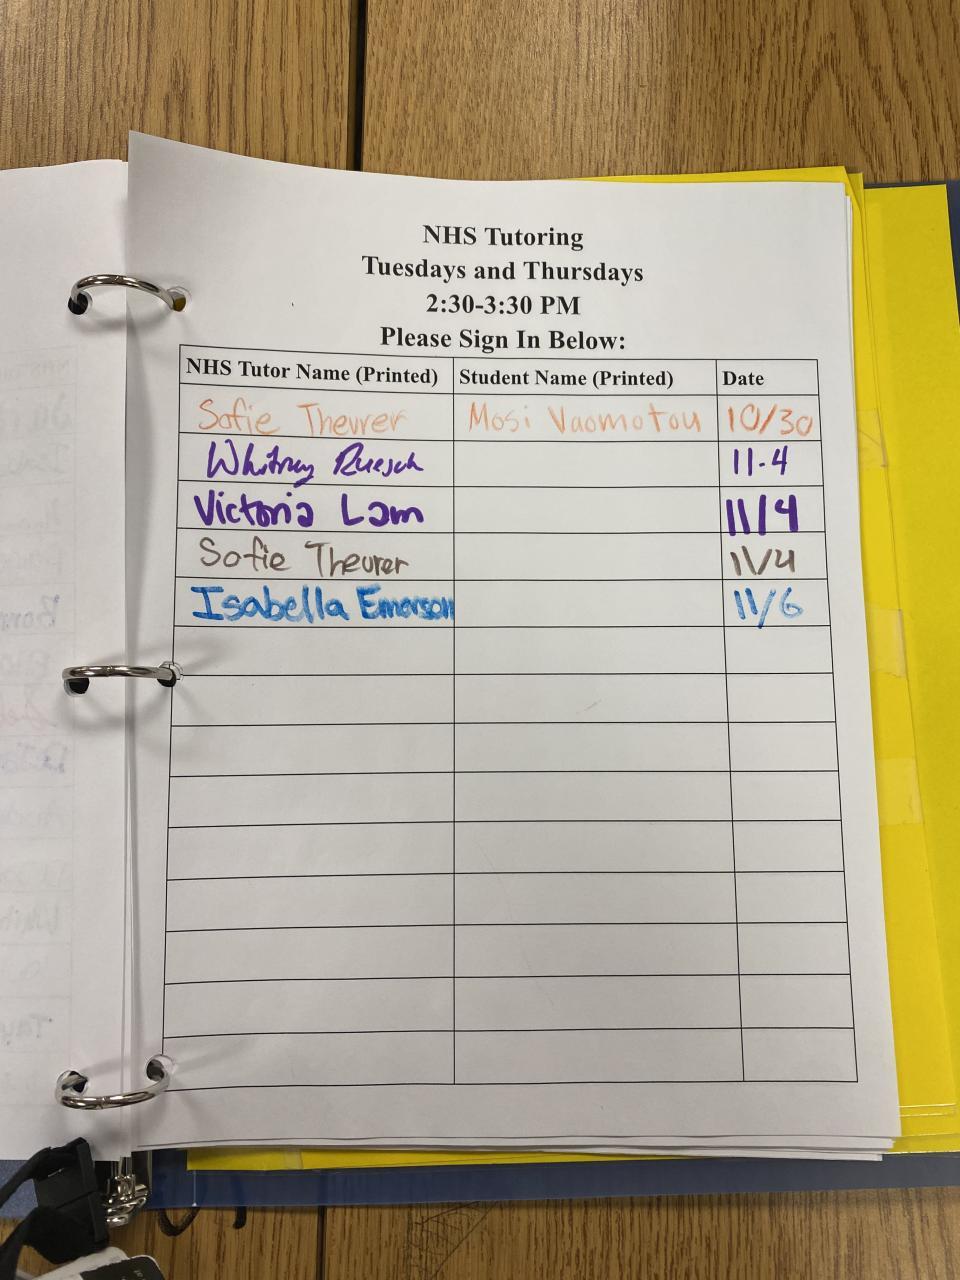 NHS Tutoring
Tuesdays and Thursdays
2:30-3:30 PM
Please Sign In Below:
NHS Tutor Name (Printed) Student Name (Printed) Date
Sofie Theurer Mosi Vaomotou 10/30
Whitney Ruesch 11-4
Victoria Lam 11/4
Sofie Theurer 11/4
Isabella Emerson 11/6